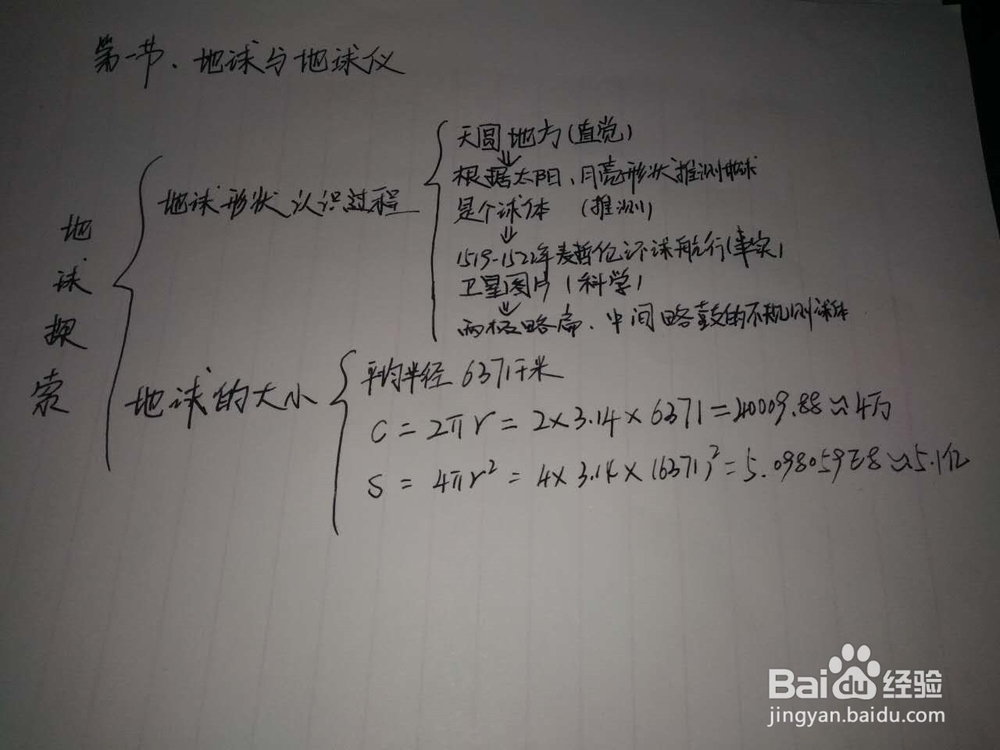 第一节、地球与地球仪
地球探索
地球形状认识过程
天圆地方(直觉)
根据太阳、月亮形状推测地球
是个球体 (推测)
1519-1522年麦哲伦环球航行(事实)
卫星图片(科学)
两极略扁、中间略鼓的不规则球体
地球的大小
平均半径 6371千米
C = 2πr = 2×3.14×6371 = 40009.88≈4万
S = 4πr² = 4×3.14×(6371)² = 5.098059E8≈5.1亿
Baidu经验
jingyan.baidu.com